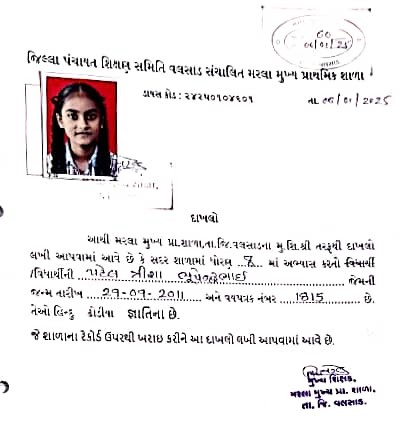 60
06/01/25
જિલ્લા પંચાયત શિક્ષણ સમિતિ વલસાડ સંચાલિત મરલા મુખ્ય પ્રાથમિક શાળા
ડાયસ કોડ : ૨૪૨૫૦૧૦૪૬૦૧
તા. 06/01/2025
દાખલો
આથી મરલા મુખ્ય પ્રા.શાળા,તા.જિ.વલસાડના મુ.શિ.શ્રી તરફથી દાખલો
લખી આપવામાં આવે છે કે સદર શાળામાં ધોરણ ..8... માં અભ્યાસ કરતો વિદ્યાર્થી
/વિદ્યાર્થીની ....પટેલ ત્રીશા ભુપેન્દ્રભાઈ.... જેમની
જન્મ તારીખ ....29-09-2011.... અને વયપત્રક નંબર ....1815.... છે.
તેઓ હિન્દુ ધોડીયા જ્ઞાતિના છે.
જે શાળાના રેકોર્ડ ઉપરથી ખરાઇ કરીને આ દાખલો લખી આપવામાં આવે છે.
મુખ્ય શિક્ષક,
મરલા મુખ્ય પ્રા. શાળા,
તા. જિ. વલસાડ.